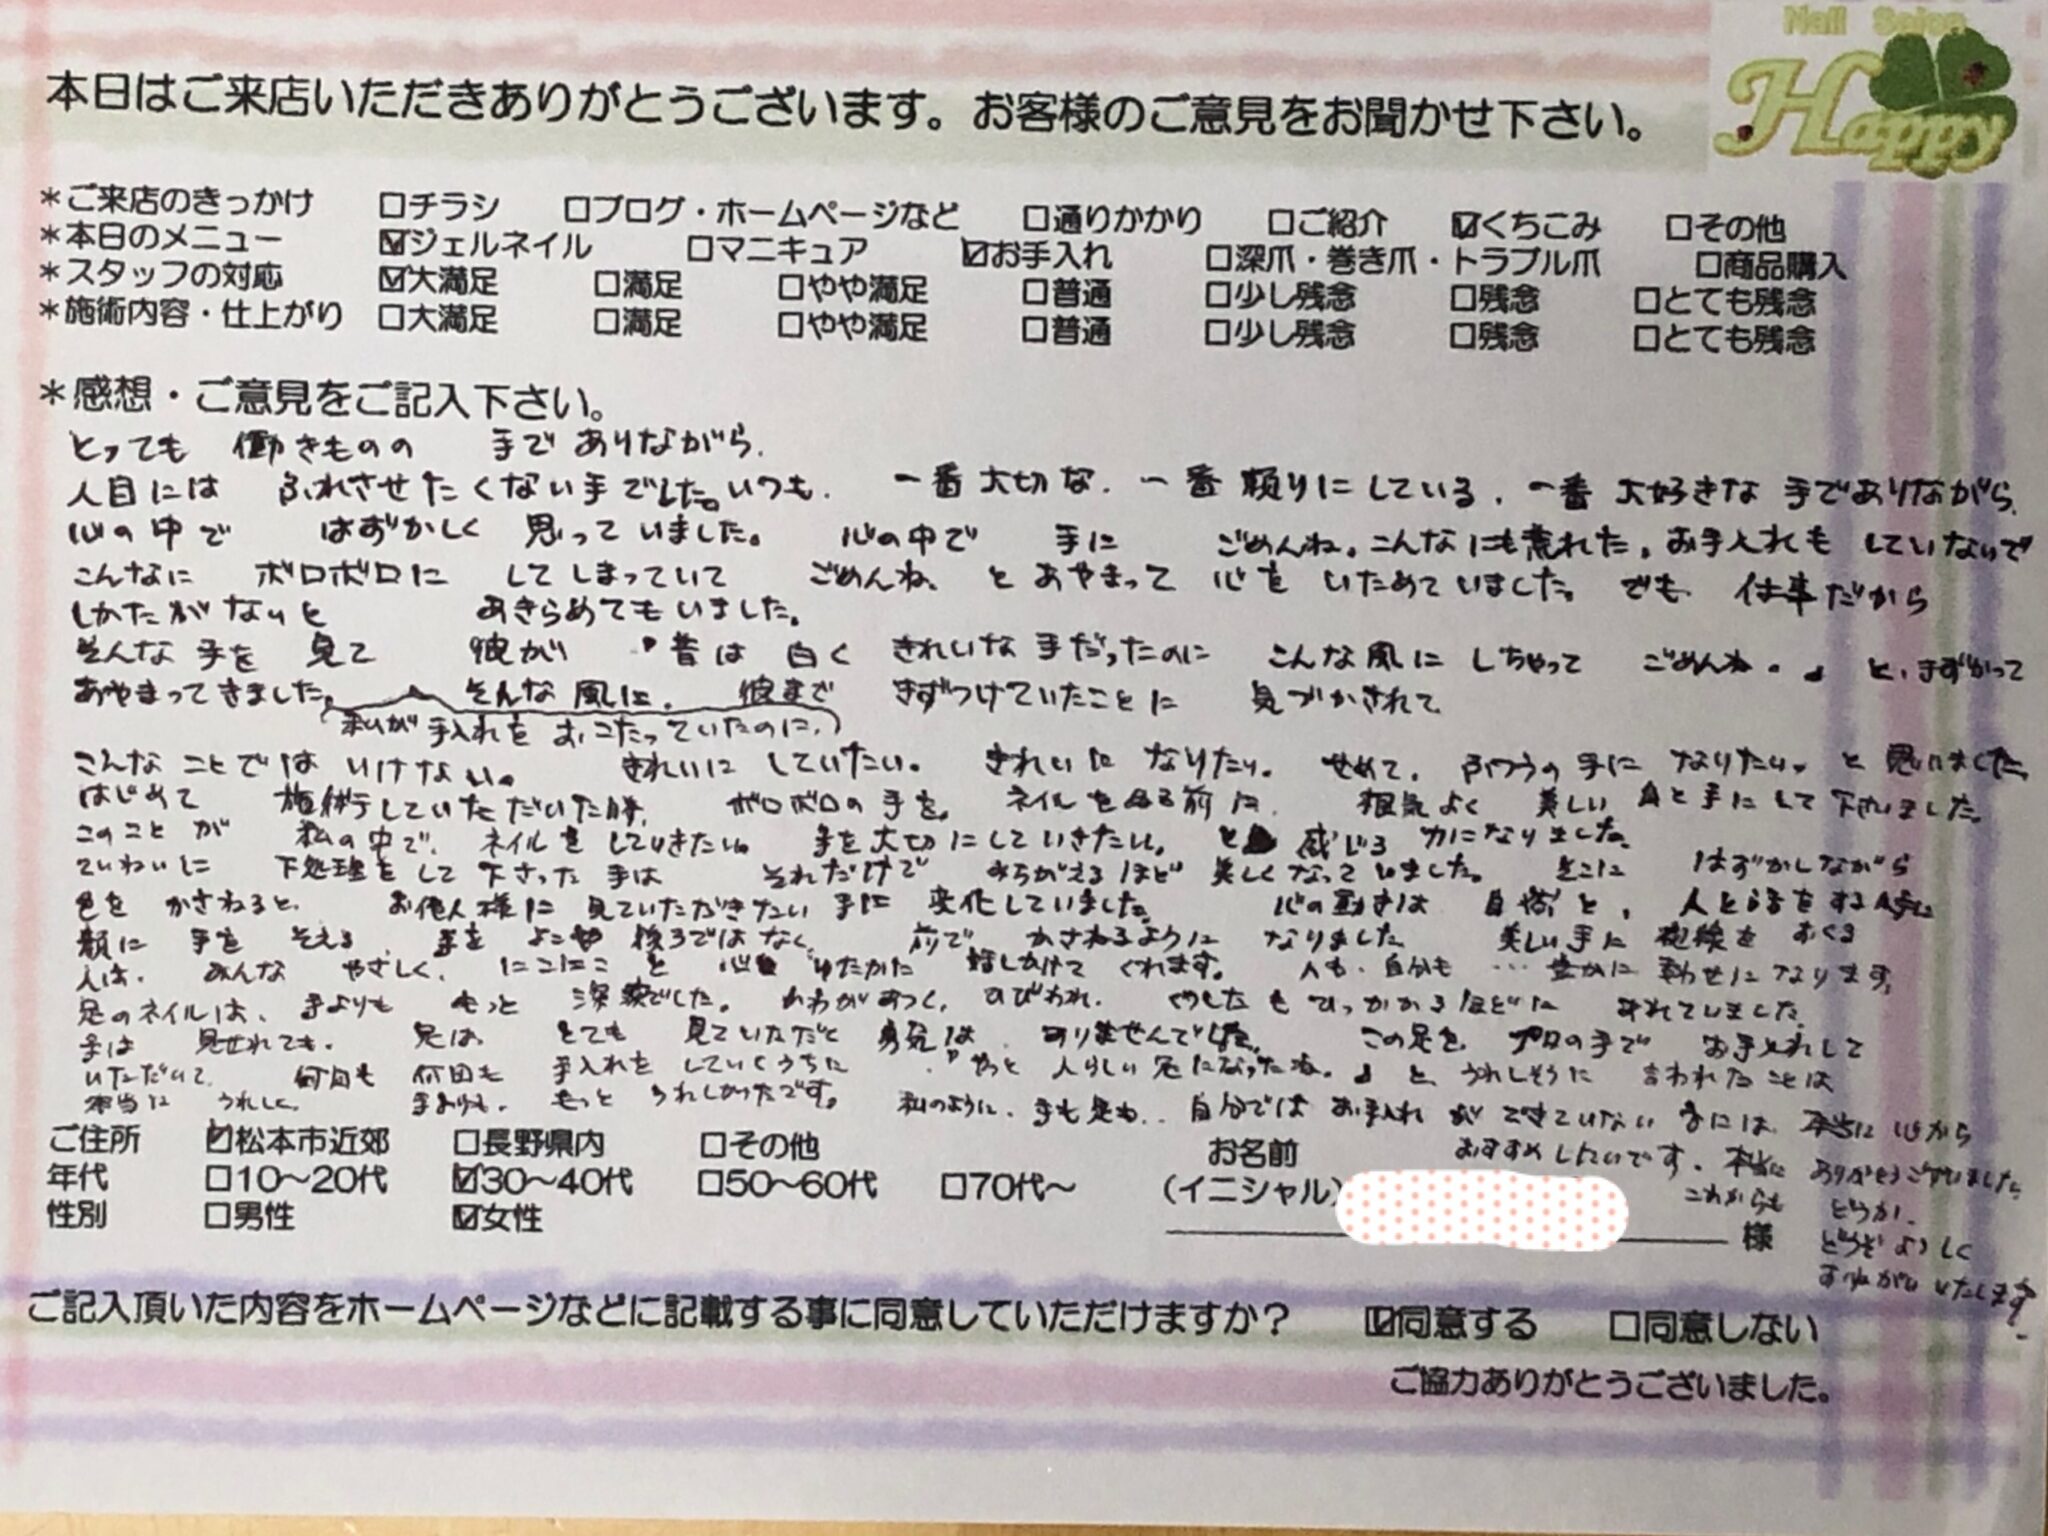 Nail Salon
Happy
本日はご来店いただきありがとうございます。お客様のご意見をお聞かせ下さい。
＊ご来店のきっかけ □チラシ □ブログ・ホームページなど □通りかかり □ご紹介 ☑くちこみ □その他
＊本日のメニュー ☑ジェルネイル □マニキュア ☑お手入れ □深爪・巻き爪・トラブル爪 □商品購入
＊スタッフの対応 ☑大満足 □満足 □やや満足 □普通 □少し残念 □残念 □とても残念
＊施術内容・仕上がり □大満足 □満足 □やや満足 □普通 □少し残念 □残念 □とても残念
＊感想・ご意見をご記入下さい。
とっても 働きものの 手でありながら、
人目には ふれさせたくない手でした。いつも、一番大切な、一番頼りにしている、一番大好きな手でありながら、
心の中で はずかしく 思っていました。 心の中で 手に ごめんね。こんなにも荒れた、お手入れもしていないで
こんなに ボロボロに してしまっていて ごめんね、とあやまって 心を いためていました。でも、仕事だから
しかたがないと あきらめてもいました。
そんな手を 見て 彼が 「昔は 白く きれいな手だったのに こんな風に しちゃって ごめんね。」と、まずかって
あやまってきました。 そんな風に、彼まで きずつけていたことに 気づかされて
(私が 手入れを おこたっていたのに、)
こんなことでは いけない。 きれいに していたい。 きれいに なりたい。 せめて、ふつうの手に なりたい。と 思いました。
はじめて 施術していただいた時、 ボロボロの手を、 ネイルを 前に、 根気よく 美しい 手にして下さいました。
このことが 私の中で、ネイルをしていきたい。 手を大切にしていきたい。と 感じる 力になりました。
ていねいに 下処理をして下さった手は それだけで みちがえるほど 美しくなっていました。 そこに はずかしながら
色を かさねると、 お他人様に 見ていただきたい 手に 変化していました。 心の動きは 自然と、人と話をする時に
顔に 手を そえる、 手を よこや 後ろではなく、 前で かさねるように なりました。 美しい手に 視線を おくる
人は、みんな やさしく、 にこにこと 心 ゆたかに 話しかけて くれます。 人も、自分も … 豊かに 幸せになります。
足のネイルは、手よりも もっと 深刻でした。 かわがあつく、ひびわれ、 くつしたも ひっかかるほどに あれていました。
手は 見せれても、 足は、 とても 見ていただだと 勇気は、ありませんでした。 この足を、プロの手で お手入れして
いただいて、 何回も 何回も 手入れを していくうちに、 「やっと 人らしい 足になったね。」と、うれしそうに 言われたことは
本当に うれしく、 手よりも、もっと うれしかったです。 私のように、手も足も、自分では お手入れ ができていない 方には、本当に 心から
おすすめしたいです。本当に ありがとうございました。
これからも どうか、
どうぞよろしく
おねがいいたします。
ご住所 ☑松本市近郊 □長野県内 □その他 お名前
年代 □10〜20代 ☑30〜40代 □50〜60代 □70代〜 （イニシャル）
性別 □男性 ☑女性 様
ご記入頂いた内容をホームページなどに記載する事に同意していただけますか？ ☑同意する □同意しない
ご協力ありがとうございました。